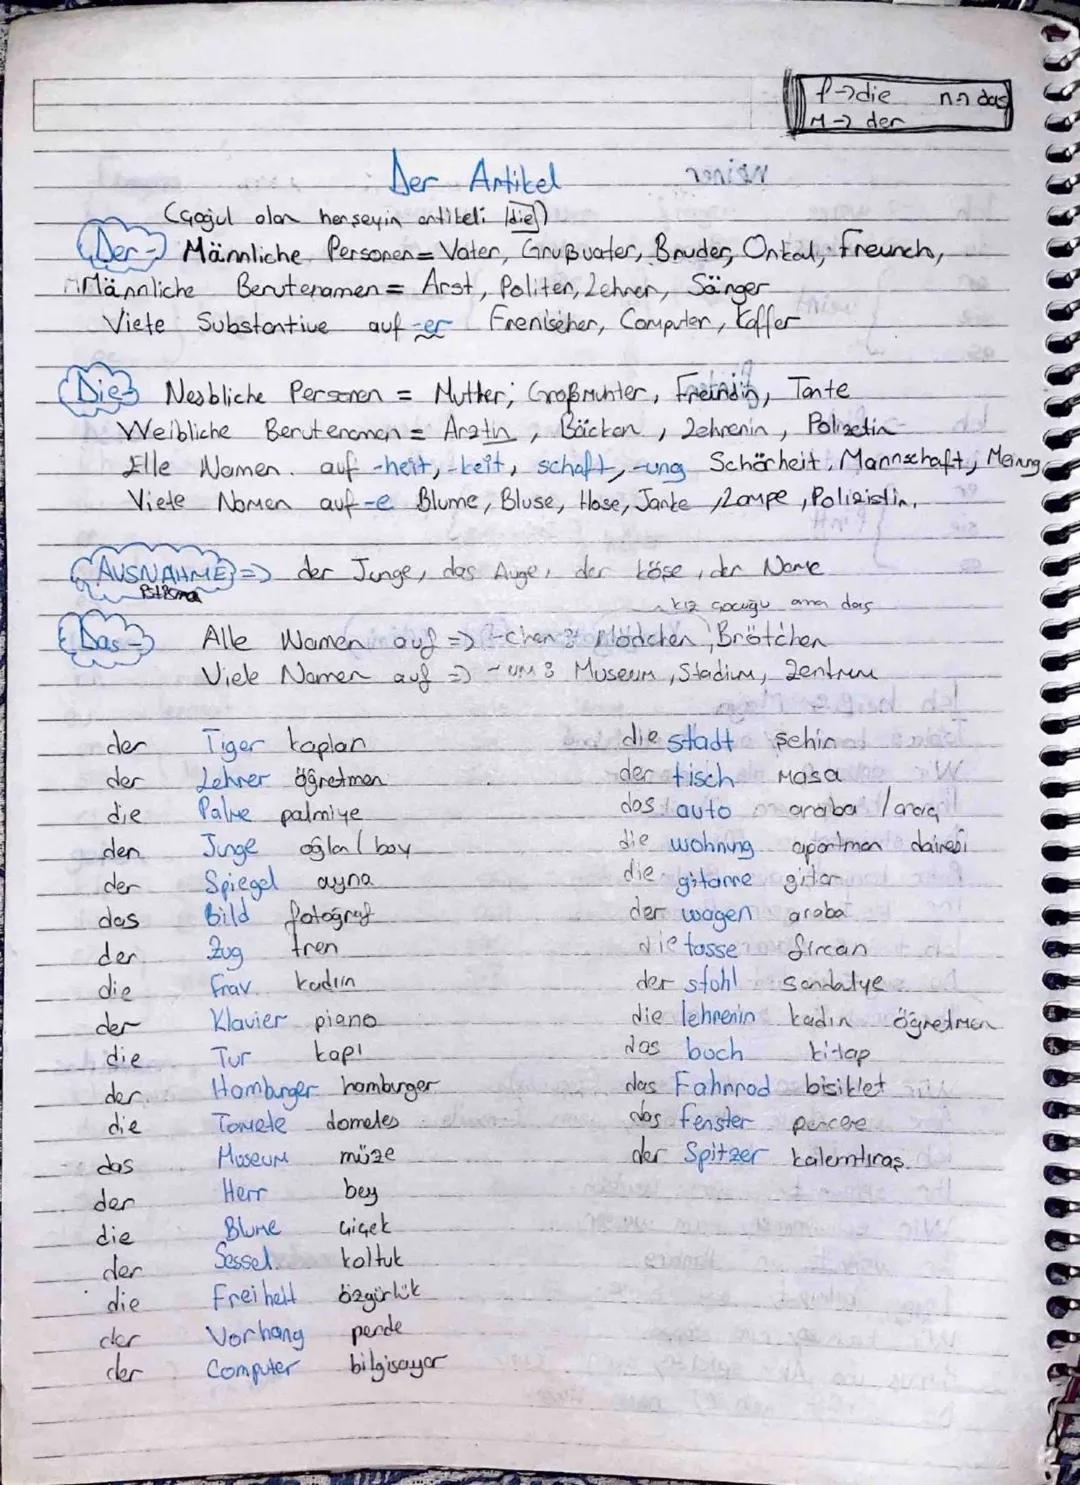 f->die n-> das
M-> der
Der Artikel
(Çoğul olan herşeyin artikeli (die))
Der-> Männliche Personen= Vater, Gruβvater, Bruder, Onkal, Freunch,
Männliche Berutenamen= Arst, Politen, Lehrer, Sänger
Viete Substantive auf -er Frenlseher, Computer, Koffer
Die-> Nesbliche Personen = Mutter; Groβmunter, Freindin, Tante
Weibliche Berutenomen= Arztin, Bäckan, Lehrenin, Polizetin
Elle Nomen. auf -heit, -keit, schaft, -ung Schörheit, Mannschaft, Meinung
Viete Nomen auf -e Blume, Bluse, Hose, Janke, Lampe, Polizistin.
AUSNAHME => der Junge, das Auge, der köse, der Name
kız çocuğu ama das
Das-> Alle Women auf => -chen: Mödchen, Brötchen
Viele Namen auf => -um: Museum, Stadium, Zentrum
der Tiger kaplan
der Lehrer öğretmen
die Palme palmiye
der Junge oğlan / boy
der Spiegel ayna
das Bild fotoğraf
der Zug tren
die frav kadıın
der Klavier piano
die Tur kapı
der Hamburger hamburger
die Tomete domates
das Museum müze
der Herr bey
die Blume çiçek
der Sessel koltuk
die Freiheit özgürlük
der Vorhang perde
der Computer bilgisayar
die stadt şehir
der tisch masa
das auto araba / araç
die wohnung apartman dairesi
die gitarre gitar
der wagen araba
die tasse fincan
der stohl sandalye
die lehrerin kadın öğretmen
das buch kitap
das Fahrrad bisiklet
das fenster pencere
der Spitzer kalemtıraş